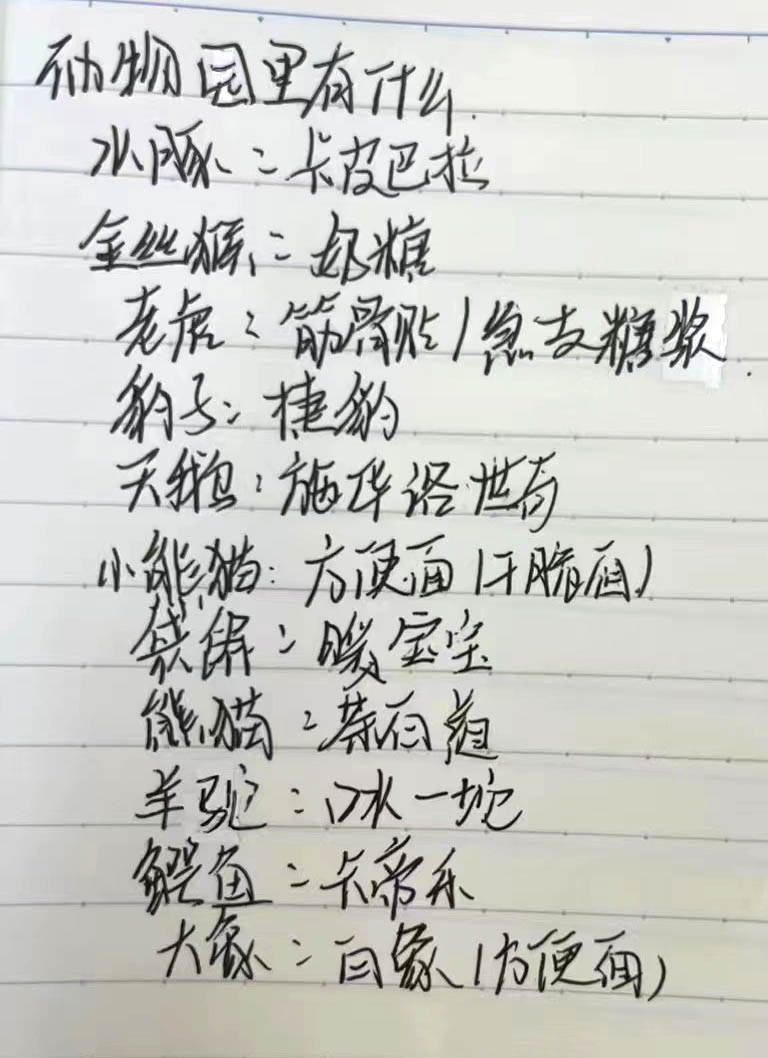 动物园里有什么
水豚：卡皮巴拉
金丝猴：奶糖
老虎：筋骨贴/急支糖浆
豹子：捷豹
天鹅：施华洛世奇
小熊猫：方便面(干脆面)
袋熊：暖宝宝
熊猫：茶百道
羊驼：冰一坨
鳄鱼：卡帝乐
大象：白象(方便面)